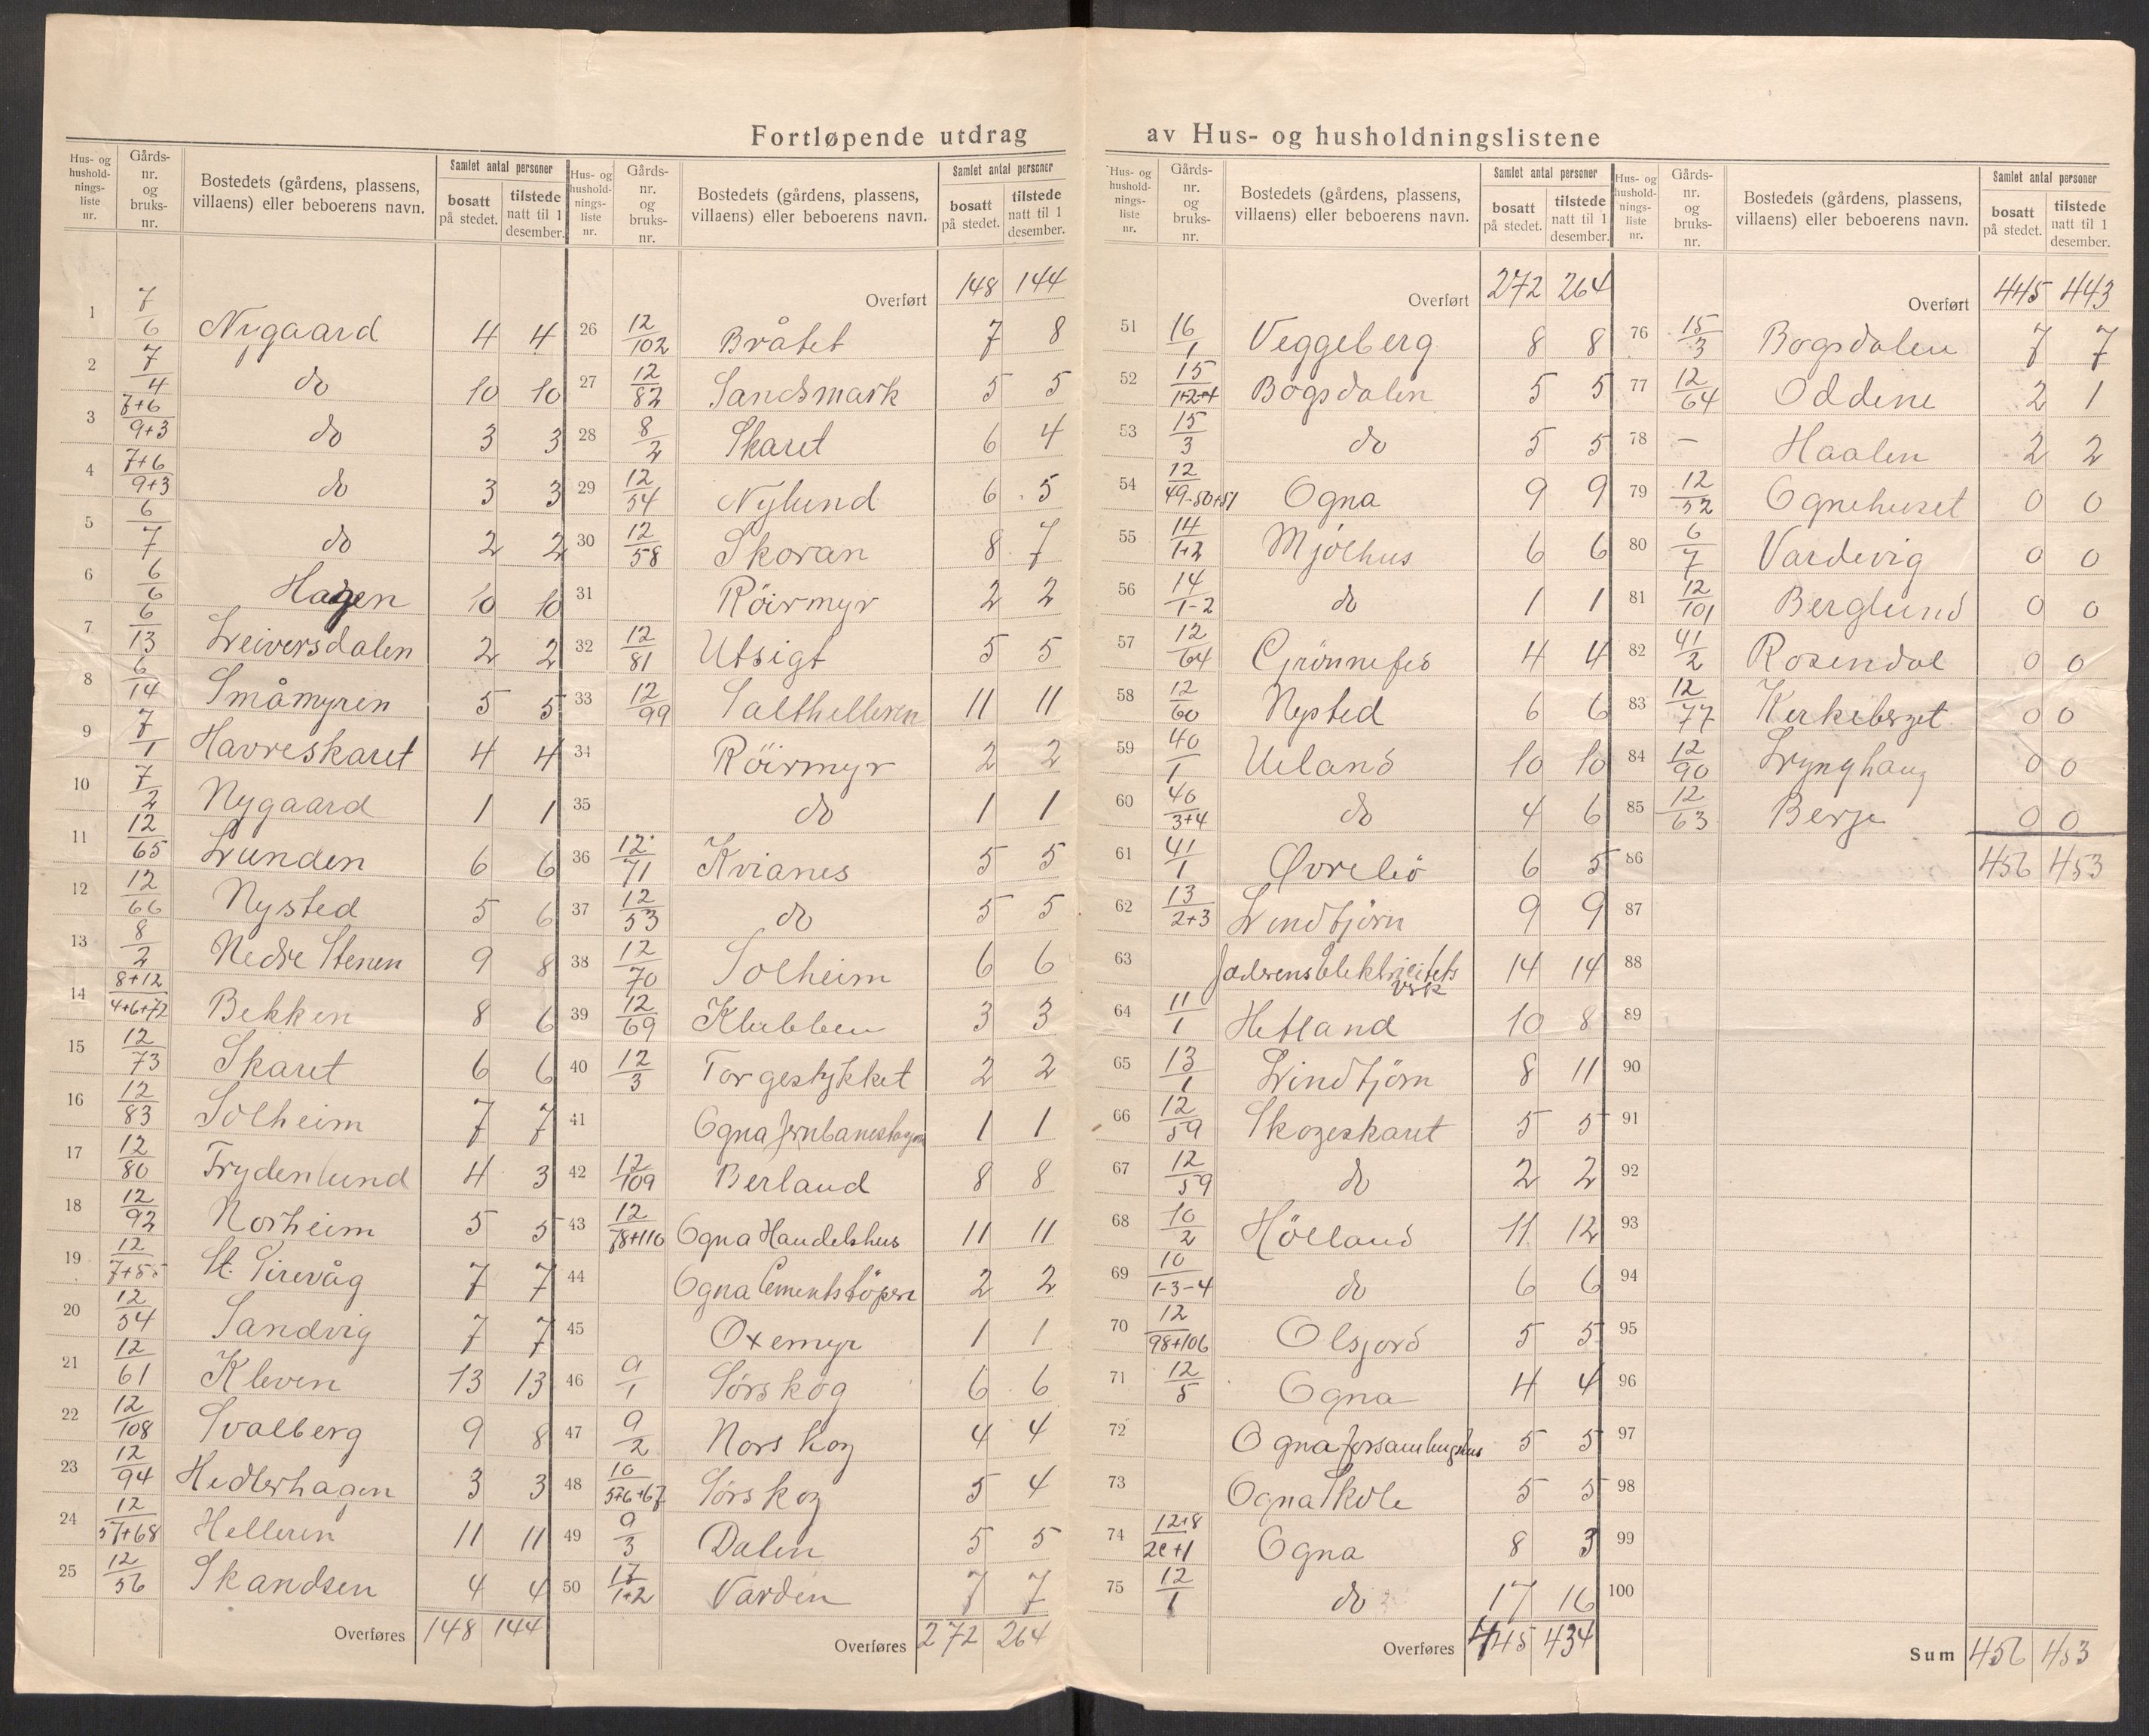 Fortløpende utdrag av Hus- og husholdningslistene
Hus- og hushold-nings-liste nr. | Gårds-nr. og bruks-nr. | Bostedets (gårdens, plassens, villaens) eller beboerens navn. | Samlet antal personer | bosatt på stedet. | tilstede natt til 1 desember.
1 7/6 Nygaard 4 4
2 7/4 do 10 10
3 7+6/9+3 do 3 3
4 7+6/9+3 do 3 3
5 6/7 do 2 2
6 6/6 Hagen 10 10
7 6/13 Leiversdalen 2 2
8 6/14 Småmyren 5 5
9 7/1 Havreskaret 4 4
10 7/2 Nygaard 1 1
11 12/65 Lunden 6 6
12 12/66 Nysted 5 6
13 8/2 Nedre Stenen 9 8
14 8+12/4+6+72 Bekken 8 6
15 12/73 Skaret 6 6
16 12/83 Solheim 7 7
17 12/80 Frydenlund 4 3
18 12/92 Norheim 5 5
19 12/7+55 St. Sirevåg 7 7
20 12/54 Sandvig 7 7
21 12/61 Kleven 13 13
22 12/108 Svalberg 9 8
23 12/94 Hedlerhagen 3 3
24 12/57+68 Helleren 11 11
25 12/56 Skandsen 4 4
Overføres 148 144
Hus- og hushold-nings-liste nr. | Gårds-nr. og bruks-nr. | Bostedets (gårdens, plassens, villaens) eller beboerens navn. | Samlet antal personer | bosatt på stedet. | tilstede natt til 1 desember.
Overført 148 144
26 12/102 Bråtet 7 8
27 12/82 Sandsmark 5 5
28 8/2 Skaret 6 4
29 12/54 Nylund 6 5
30 12/58 Skoran 8 7
31 Röirmyr 2 2
32 12/81 Utsigt 5 5
33 12/99 Salthelleren 11 11
34 Röirmyr 2 2
35 do 1 1
36 12/71 Kvianes 5 5
37 12/53 do 5 5
38 12/70 Solheim 6 6
39 12/69 Klubben 3 3
40 12/3 Torgestykket 2 2
41 Ogna 1 1
42 12/109 Berland 8 8
43 12/78+110 Ogna Handelshus 11 11
44 Ogna Cementstöperi 2 2
45 Oxemyr 1 1
46 9/1 Sörskog 6 6
47 9/2 Norskog 4 4
48 10/5+6+67 Sörskog 5 4
49 9/3 Dalen 5 5
50 17/1+2 Varden 7 7
Overføres 272 264
Hus- og hushold-nings-liste nr. | Gårds-nr. og bruks-nr. | Bostedets (gårdens, plassens, villaens) eller beboerens navn. | Samlet antal personer | bosatt på stedet. | tilstede natt til 1 desember.
Overført 272 264
51 16/1 Veggeberg 8 8
52 15/1+2+4 Bogsdalen 5 5
53 15/3 do 5 5
54 12/49-50+51 Ogna 9 9
55 14/1+2 Mjölhus 6 6
56 14/1-2 do 1 1
57 12/64 4 4
58 12/60 Nysted 6 6
59 40/1 Ueland 10 10
60 40/3+4 do 4 6
61 41/1 Øvrebö 6 5
62 13/2+3 Lindtjörn 9 9
63 Jæderens elektricitets verk 14 14
64 11/1 Hetland 10 8
65 13/1 Lindtjörn 8 11
66 12/59 Skogeskaret 5 5
67 12/59 do 2 2
68 10/2 Hölland 11 12
69 10/1-3-4 do 6 6
70 12/98+106 Olsjord 5 5
71 12/5 Ogna 4 4
72 Ogna forsamlingshus 5 5
73 Ogna Skole 5 5
74 12+8/2e+1 Ogna 8 3
75 12/1 do 17 16
Overføres 445 434
Hus- og hushold-nings-liste nr. | Gårds-nr. og bruks-nr. | Bostedets (gårdens, plassens, villaens) eller beboerens navn. | Samlet antal personer | bosatt på stedet. | tilstede natt til 1 desember.
Overført 445 443
76 15/3 Bogsdalen 7 7
77 12/64 Oddene 2 1
78 – Haalen 2 2
79 12/52 Ognehuset 0 0
80 6/7 Vardevig 0 0
81 12/101 Berglund 0 0
82 41/2 Rosendal 0 0
83 12/77 Kirkeberget 0 0
84 12/90 Lynghaug 0 0
85 12/63 Berge 0 0
86 456 453
87
88
89
90
91
92
93
94
95
96
97
98
99
100
Sum 456 453